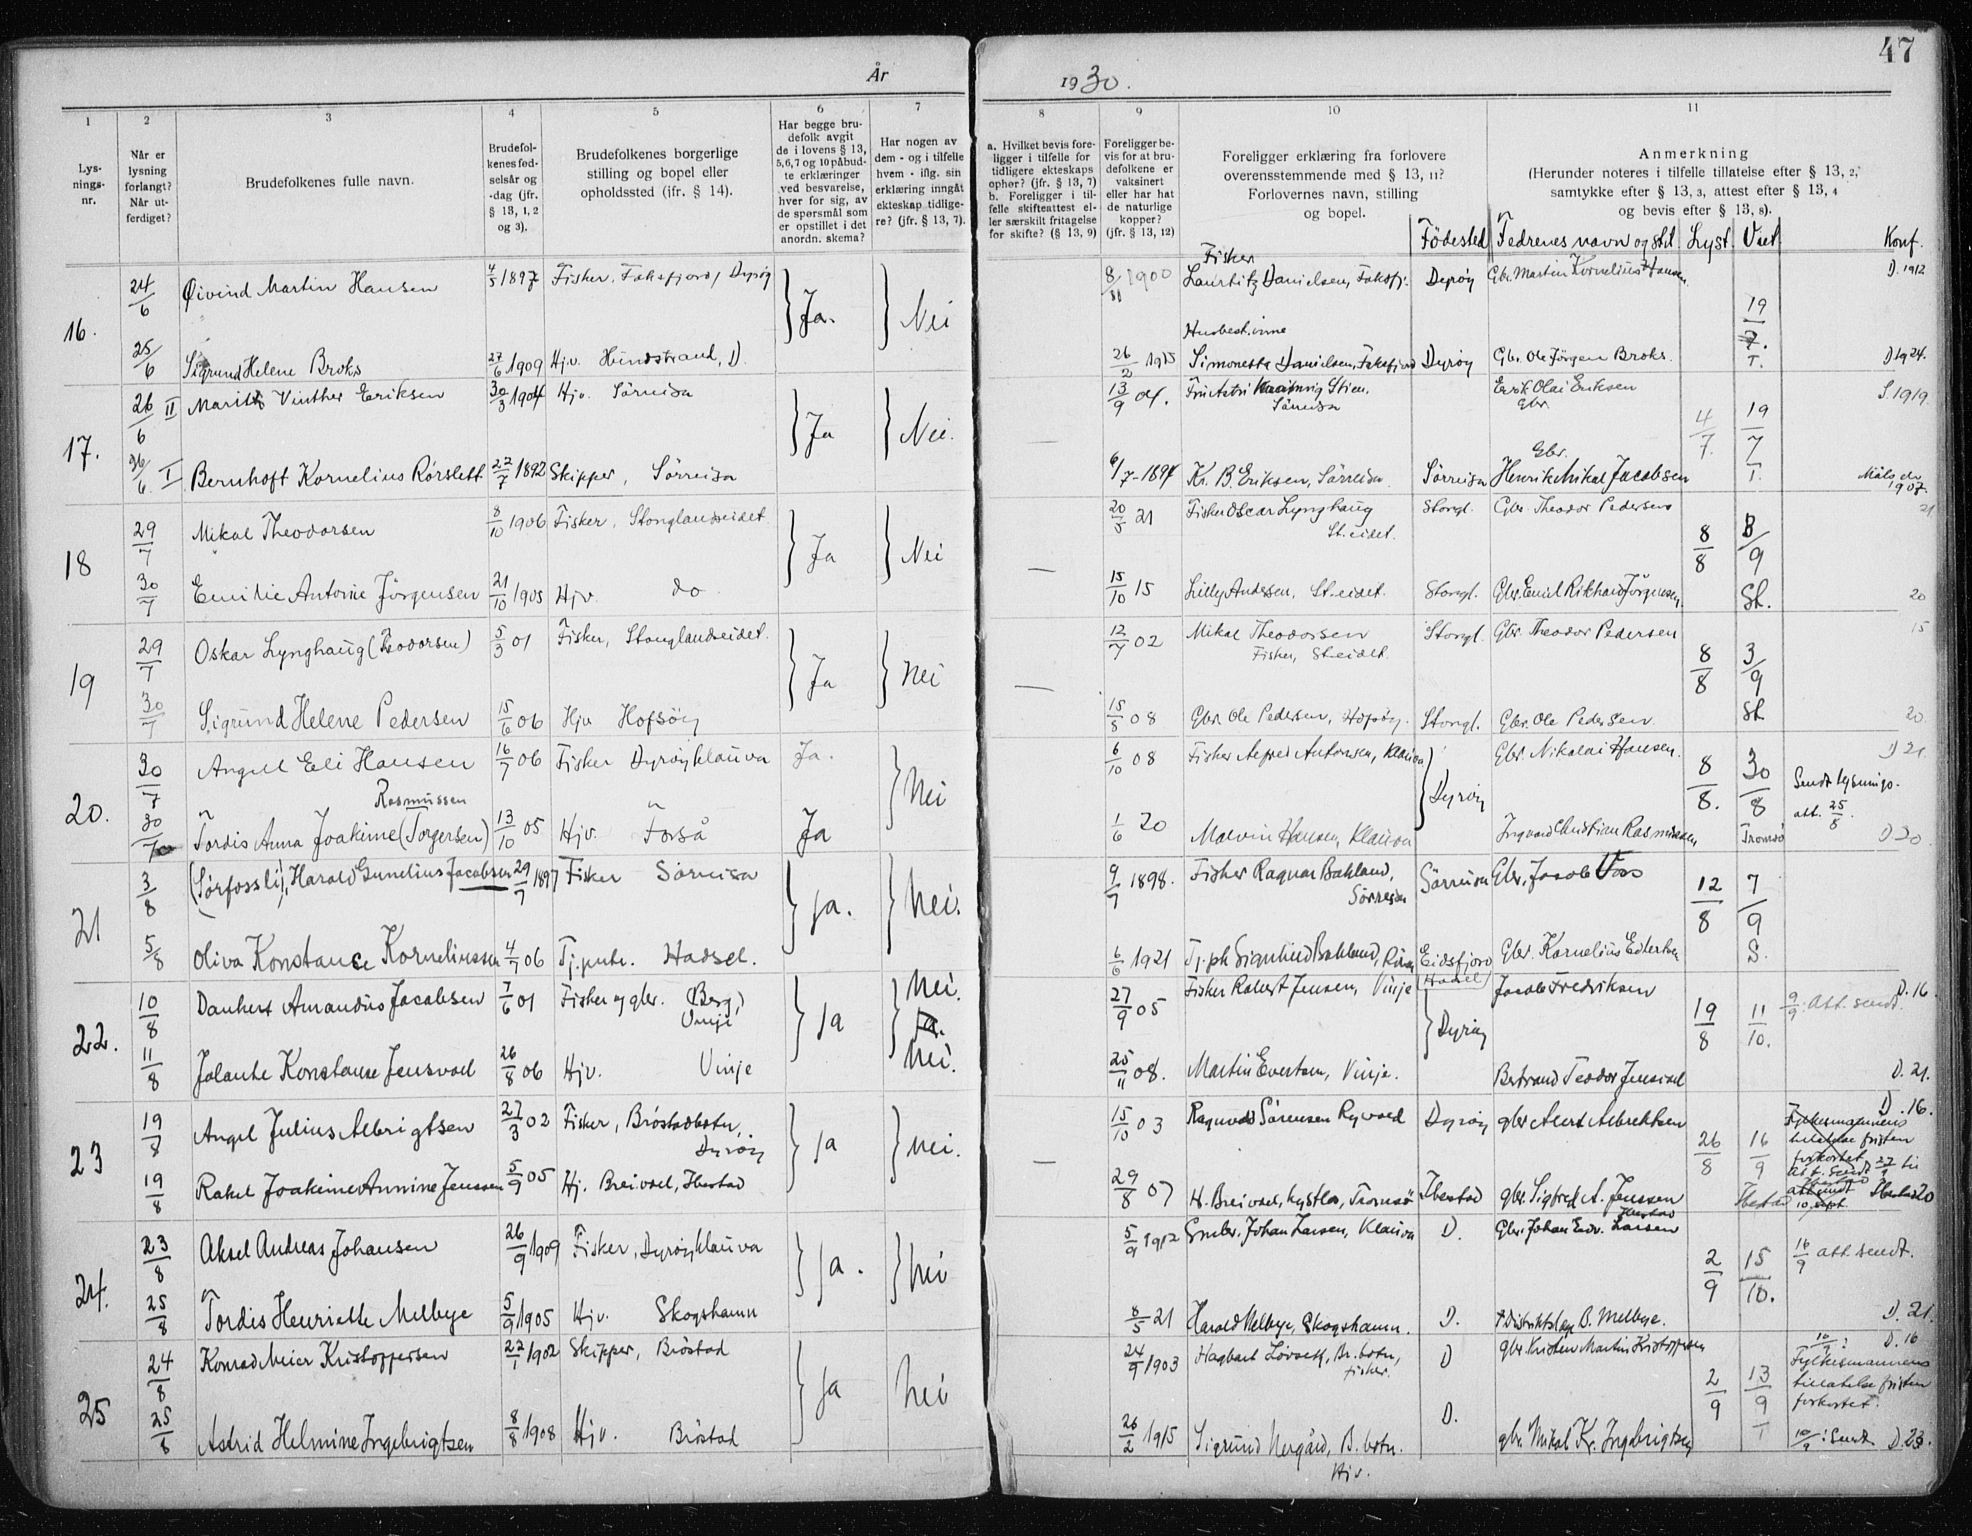 47
År
1930.
1
2
3
4
5
6
7
8
9
10
11
Lys-
nings-
nr.
Når er
lysning
forlangt?
Når ut-
ferdiget?
Brudefolkenes fulle navn.
Brudefol-
kenes fød-
selsår og
-dag (jfr.
§ 13, 1, 2
og 3).
Brudefolkenes borgerlige
stilling og bopel eller
opholdssted (ifr. § 14).
Har begge bru-
defolk avgit
de i lovens § 13,
5,6,7 og 10 påbud-
te erklæringer
ved besvarelse,
hver for sig, av
de spørsmål som
er opstillet i det
anordn. skema?
Har nogen av
dem - og i tilfelle
hvem - iflg. sin
erklæring inngått
ekteskap tidlige-
re? (jfr. § 13, 7).
a. Hvilket bevis fore-
ligger i tilfelle for
tidligere ekteskaps
ophør? (jfr. § 13, 7)
b. Foreligger i til-
felle skifteattest el-
ler særskilt fritagelse
for skifte? (§ 13, 9)
Foreligger be-
vis for at bru-
defolkene er
vaksinert
eller har hat
de naturlige
kopper?
(jfr. § 13, 12)
Foreligger erklæring fra forlovere
overensstemmende med § 13, 11?
Forlovernes navn, stilling
og bopel.
Anmerkning
(Herunder noteres i tilfelle tillatelse efter § 13, 2,
samtykke efter § 13, 3, attest efter § 13, 4
og bevis efter § 13, 8).
Fødested Fedrenes navn og stil. Lyst Viet Konf.
16. 24/6 Øivind Martin Hansen 4/5 1897 Fisker, Faksfjord, Dyrøy Ja. Nei 8/11 1900 Fisker Lauritz Danielsen, Faksfj. Dyrøy Gbr. Martin Kornelius Hansen 19/7. T. D. 1912
25/6 Sigrund Helene Broks 27/6 1909 Hjv. Hundstrand, D. 26/2 1915 Husbestinne Simonette Danielsen, Faksfjord Dyrøy Gbr. Ole Jörgen Broks. D 1924.
17. 26/6 II Marit Vinther Eriksen 30/3 1904 Hjv. Sörreisa Ja Nei. 13/9 04. Sörreisa Erik Olai Eriksen Gbr. 4/7. 19/7 T. S. 1919.
26/6. I. Bernhoft Kornelius Rörslett 22/7 1892 Skipper, Sörreisa 6/7-1894 Kr. B. Eriksen, Sörreisa. Sörreisa Gbr. Henrik Mikal Jacobsen Målselv 1907.
18 29/7 Mikal Theodorsen 8/10 1906 Fisker, Stonglandseidet. Ja Nei 20/5 21 Fisker Oscar Lynghaug St.eidet. Stongl. Gbr. Theodor Pedersen 8/8 3/9 St. 21
30/7 Emilie Antonie Jörgensen 21/10 1905 Hjv. do 15/10 15 Lilly Andersen, St.eidet. Stongl. Gbr. Emil Rikhard Jörgensen. 20
19 29/7 Oskar Lynghaug (Teodorsen) 5/3 01 Fisker, Stonglandseidet. Ja Nei 12/7 02 Mikal Theodorsen Fisker, St.eidet. Stongl. Gbr. Theodor Pedersen 8/8 3/9 St. 15
30/7 Sigrund Helene Pedersen 15/6 06 Hjv Hofsöy 15/5 08 Gbr. Ole Pedersen, Hofsöy. Stongl. Gbr. Ole Pedersen. 20.
20. 30/7 Angell Eli Hansen 16/7 06 Fisker Dyröyklauva Ja. Nei 6/10 08 Fisker Alfred Antonsen, Klauva Dyröy Gbr. Nikolai Hansen. 8/8. 30/8 Tromsö Sendt lysnings-att. 25/8. D 21.
30/7 Tordis Anna Joakime (Torgersen) Rasmussen 13/10 05 Hjv. Forså Ja 1/6 20 Malvin Hansen, Klauva Ingvard Christian Rasmussen, D 20
21 3/8 (Sørfossli), Harald Gunelius Jacobsen 29/7 1897 Fisker Sörreisa Ja. Nei. 9/7 1898. Fisker Ragnar Bakland, Sörreisa Sörreisa Gbr. Jacob Voss 12/8 7/9 S.
5/8 Oliva Konstance Korneliussen 4/7 06 Tj.pike. Hadsel. 6/6 1921 Tj.pk Signhild Bakland, Eidsfjord (Hadsel) Gbr. Kornelius
22. 10/8 Dankert Amandus Jacobsen 7/6 01 Fisker og gbr. (Berg) Vinje Ja Nei. 27/9 05 Fisker Robert Jensen, Vinje Dyröy Jacob Fredriksen 19/8 11/10. 9/9. Att. sendt. D. 16.
11/8 Jolante Konstanse Jensvold 26/8 06 Hjv. Vinje Nei. 25/11 08. Martin Evertsen, Vinje. Bertrand Teodor Jensvold D. 21.
23 19/8 Angel Julius Albrigtsen 27/3 02 Fisker, Bröstadbotn, Dyröy Ja Nei. 15/10 03 Ragnvald Sörensen Dyröy gbr. Alert Albrektsen 26/8 16/9 Ibestad Fylkesmannens tillatelse fristen forkortet Att. sendt 27/9 til Ibestad att sendt 10. sept. D. 16.
19/8 Rakel Joakime Annine Jenssen 5/9 05 Hj. Breivoll, Ibestad 29/8 07 H. Breivoll, Tromsö Ibestad gbr. Sigfred A. Jenssen Ibestad Ibestad 20
24. 23/8 Aksel Andreas Johansen 26/9 1909 Fisker, Dyröyklauva Ja. Nei 5/9 1912 Johan Larsen, Klauva D. Gbr. Johan Edv. Larsen 2/9 15/10. 16/9 att. sendt.
25/8 Tordis Henriette Melbye 5/9 1905 Hjv. Skogshamn 8/5 21 Harald Melbye, Skogshamn. D. † Distriktslæge B. Melbye. D. 21.
25 24/8 Konrad Meier Kristoffersen 22/1 1902 Skipper, Bröstad Ja Nei 24/9 1903 Hagbart Lövseth, Br.botn, fisker. D gbr. Kristen Martin Kristoffersen 2/9 13/9 T 10/9: Fylkesmannens tillatelse fristen forkortet. D. 16
25/8 Astrid Helmine Ingebrigtsen 8/8 1908 Hjv. Bröstad 26/2 1915 Sigrund Nergård, B.botn. Hjv. D. gbr. Mikal Kr. Ingebrigtsen 10/9: Sendt D. 23.